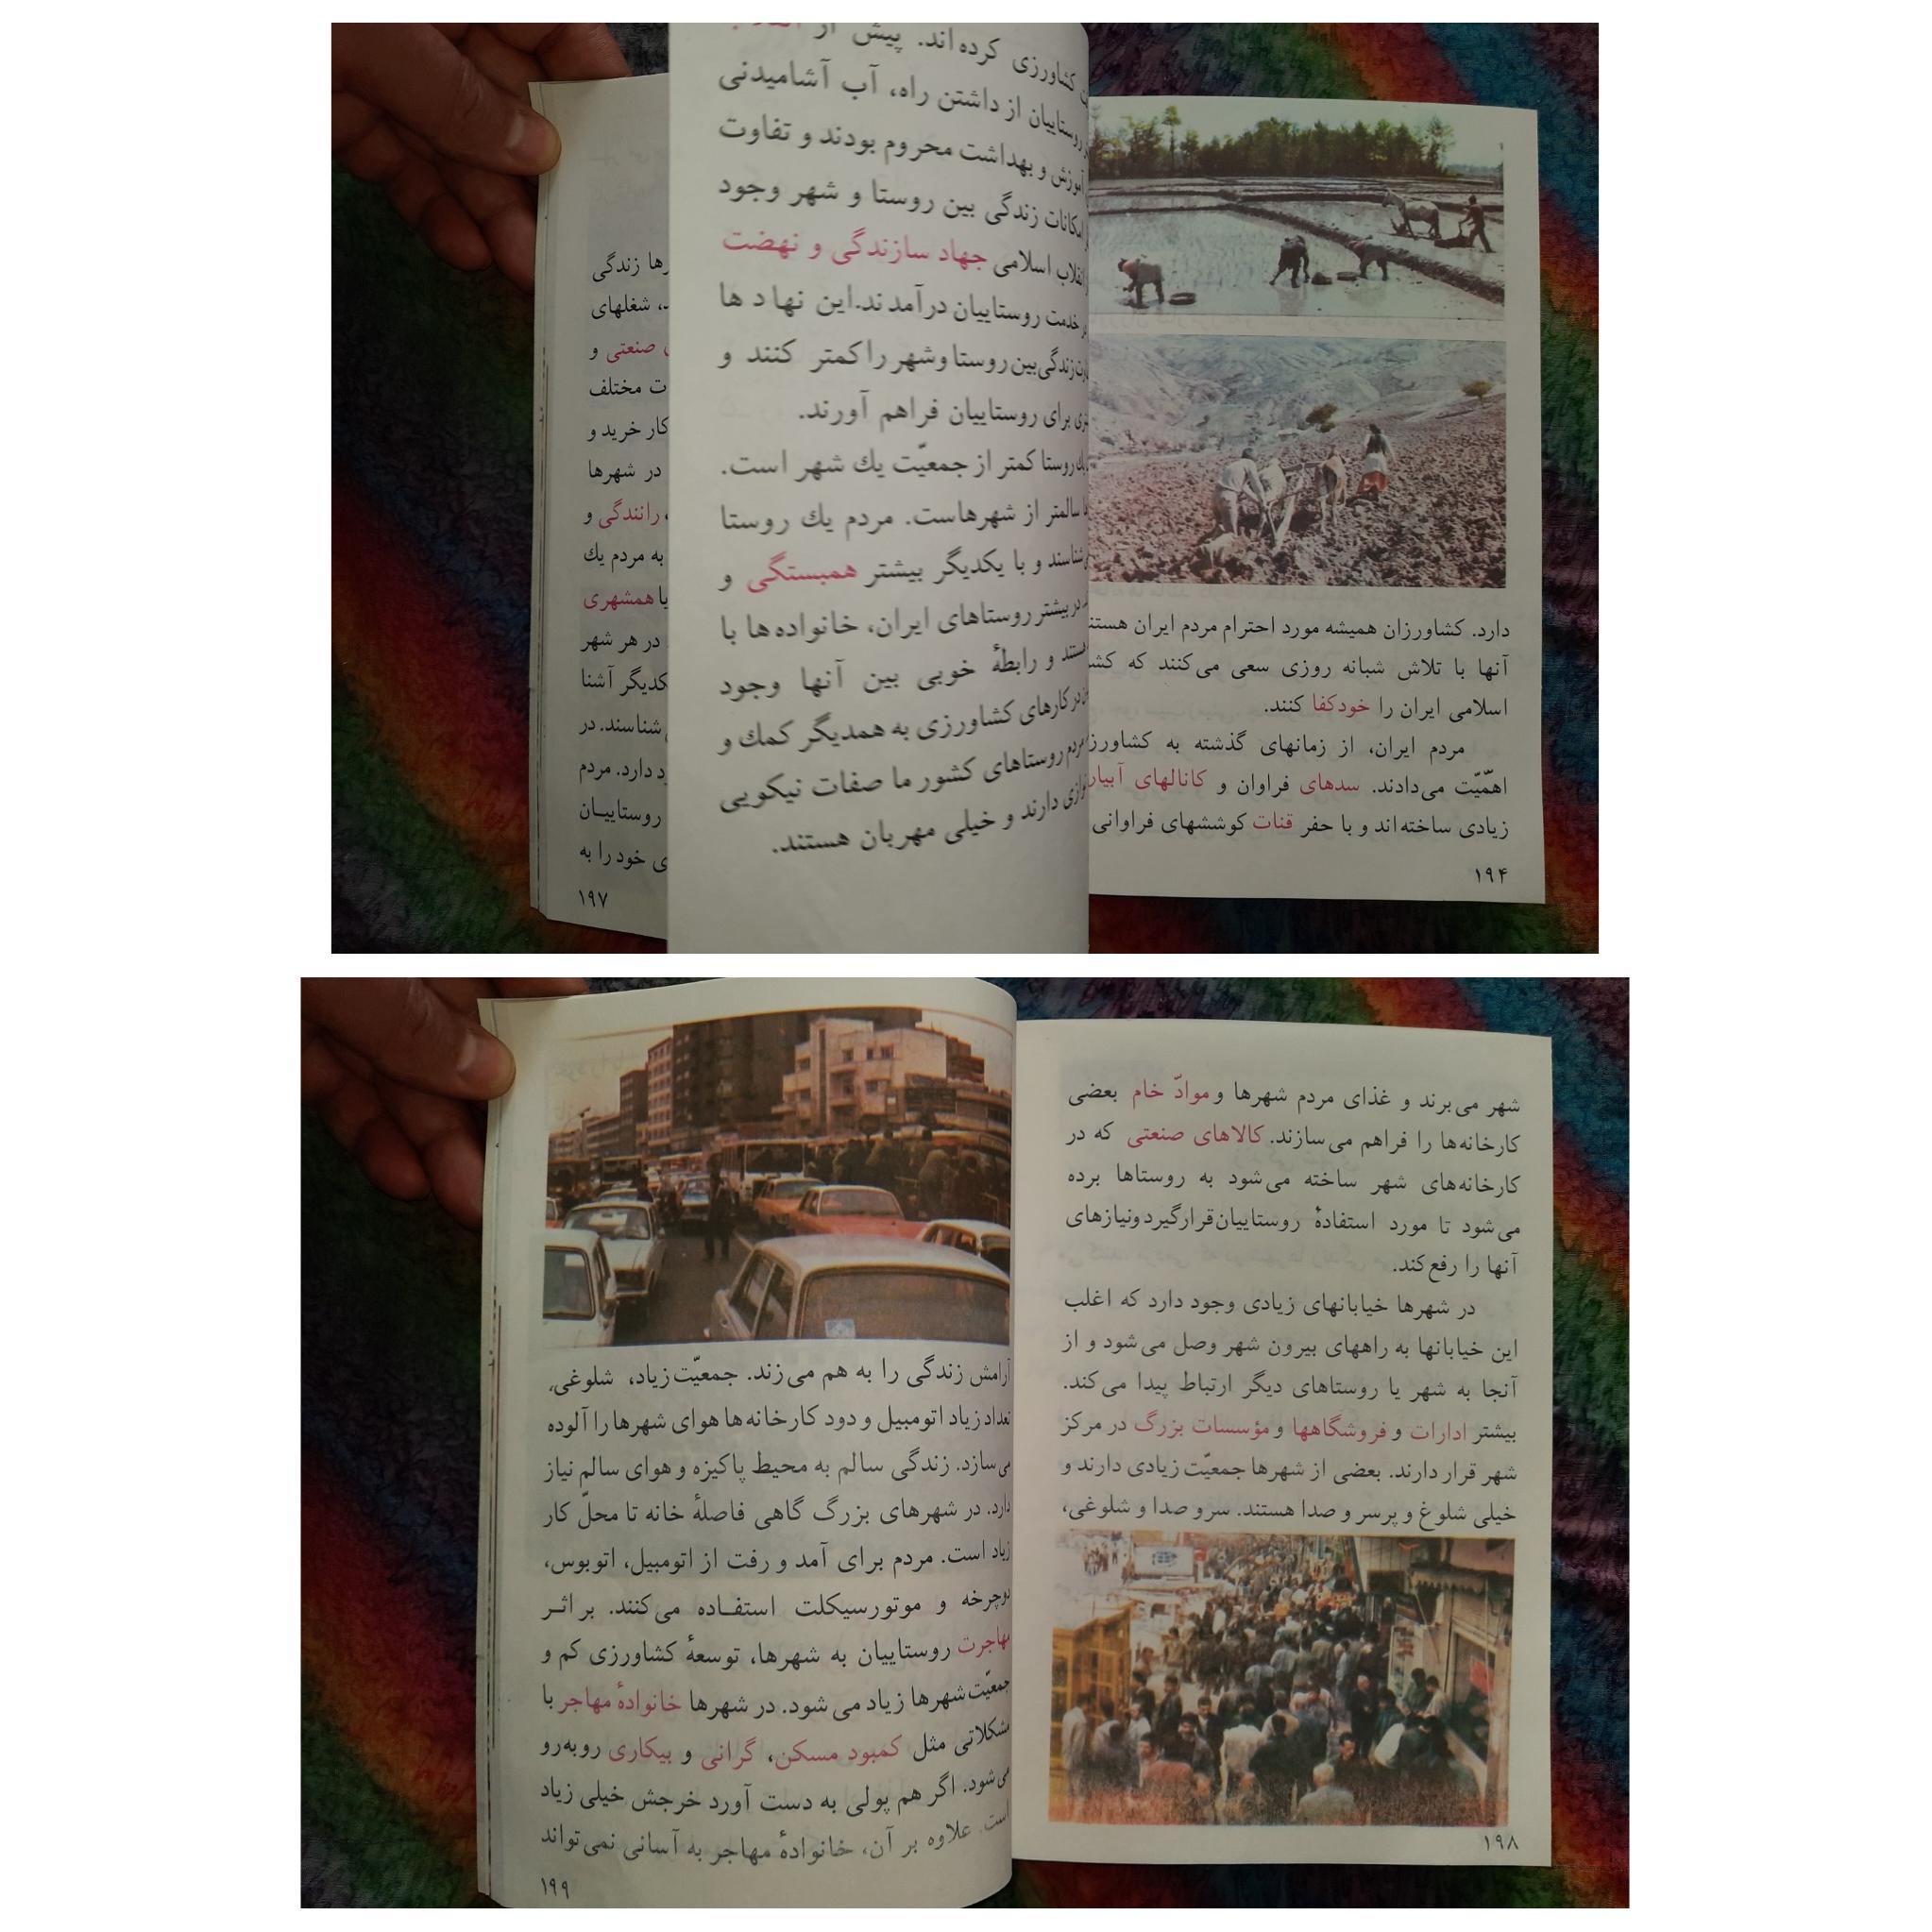 دارد. کشاورزان همیشه مورد احترام مردم ایران
آنها با تلاش شبانه روزی سعی می‌کنند که
اسلامی ایران را خودکفا کنند.
مردم ایران، از زمانهای گذشته به
اهمّیّت می‌دادند. سدهای فراوان و کانالهای
زیادی ساخته‌اند و با حفر قنات کوششهای فراوانی
۱۹۴
کشاورزی کرده‌اند. پیش از
روستاییان از داشتن راه، آب آشامیدنی
آموزش و بهداشت محروم بودند و تفاوت
امکانات زندگی بین روستا و شهر وجود
انقلاب اسلامی جهاد سازندگی و نهضت
خدمت روستاییان درآمدند. این نهادها
زندگی بین روستا و شهر را کمتر کنند و
برای روستاییان فراهم آورند.
روستا کمتر از جمعیّت یك شهر است.
سالمتر از شهرهاست. مردم یك روستا
و با یکدیگر بیشتر همبستگی و
در بیشتر روستاهای ایران، خانواده‌ها با
و رابطهٔ خوبی بین آنها وجود
در کارهای کشاورزی به همدیگر کمك و
مردم روستاهای کشور ما صفات نیکویی
دارند و خیلی مهربان هستند.
زندگی
شغلهای
صنعتی و
مختلف
کار خرید و
در شهرها
رانندگی و
به مردم یك
یا همشهری
در هر شهر
آشنا
در
دارد. مردم
روستاییان
خود را به
۱۹۷
شهر می‌برند و غذای مردم شهرها و موادّ خام بعضی
کارخانه‌ها را فراهم می‌سازند. کالاهای صنعتی که در
کارخانه‌های شهر ساخته می‌شود به روستاها برده
می‌شود تا مورد استفادهٔ روستاییان قرار گیرد و نیازهای
آنها را رفع کند.
در شهرها خیابانهای زیادی وجود دارد که اغلب
این خیابانها به راههای بیرون شهر وصل می‌شود و از
آنجا به شهر یا روستاهای دیگر ارتباط پیدا می‌کند.
بیشتر ادارات و فروشگاهها و مؤسسات بزرگ در مرکز
شهر قرار دارند. بعضی از شهرها جمعیّت زیادی دارند و
خیلی شلوغ و پرسر و صدا هستند. سر و صدا و شلوغی،
۱۹۸
آرامش زندگی را به هم می‌زند. جمعیّت زیاد، شلوغی،
تعداد زیاد اتومبیل و دود کارخانه‌ها هوای شهرها را آلوده
می‌سازد. زندگی سالم به محیط پاکیزه و هوای سالم نیاز
دارد. در شهرهای بزرگ گاهی فاصلهٔ خانه تا محلّ کار
زیاد است. مردم برای آمد و رفت از اتومبیل، اتوبوس،
دوچرخه و موتورسیکلت استفاده می‌کنند. بر اثر
مهاجرت روستاییان به شهرها، توسعهٔ کشاورزی کم و
جمعیّت شهرها زیاد می‌شود. در شهرها خانوادهٔ مهاجر با
مشکلاتی مثل کمبود مسکن، گرانی و بیکاری روبه‌رو
می‌شود. اگر هم پولی به دست آورد خرجش خیلی زیاد
است. علاوه بر آن، خانوادهٔ مهاجر به آسانی نمی‌تواند
۱۹۹